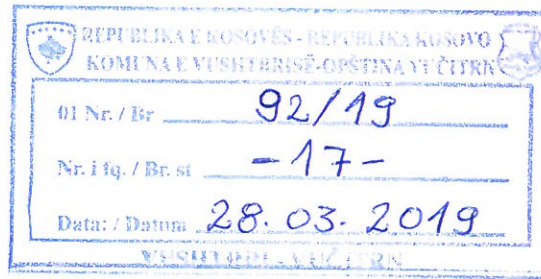 REPUBLIKA E KOSOVËS - REPUBLIKA KOSOVO
KOMUNA E VUSHTRRISË-OPŠTINA VUČITRN
01 Nr. / Br 92/19
Nr. i fq. / Br. st -17-
Data: / Datum 28.03.2019
VUSHTRRI - VUČITRN